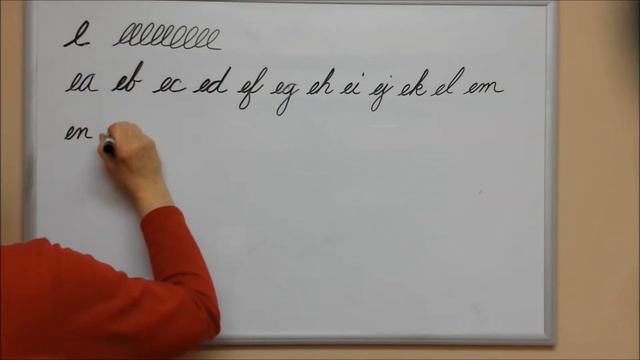 e eeeeeeeee
ea eb ec ed ef eg eh ei ej ek el em
en